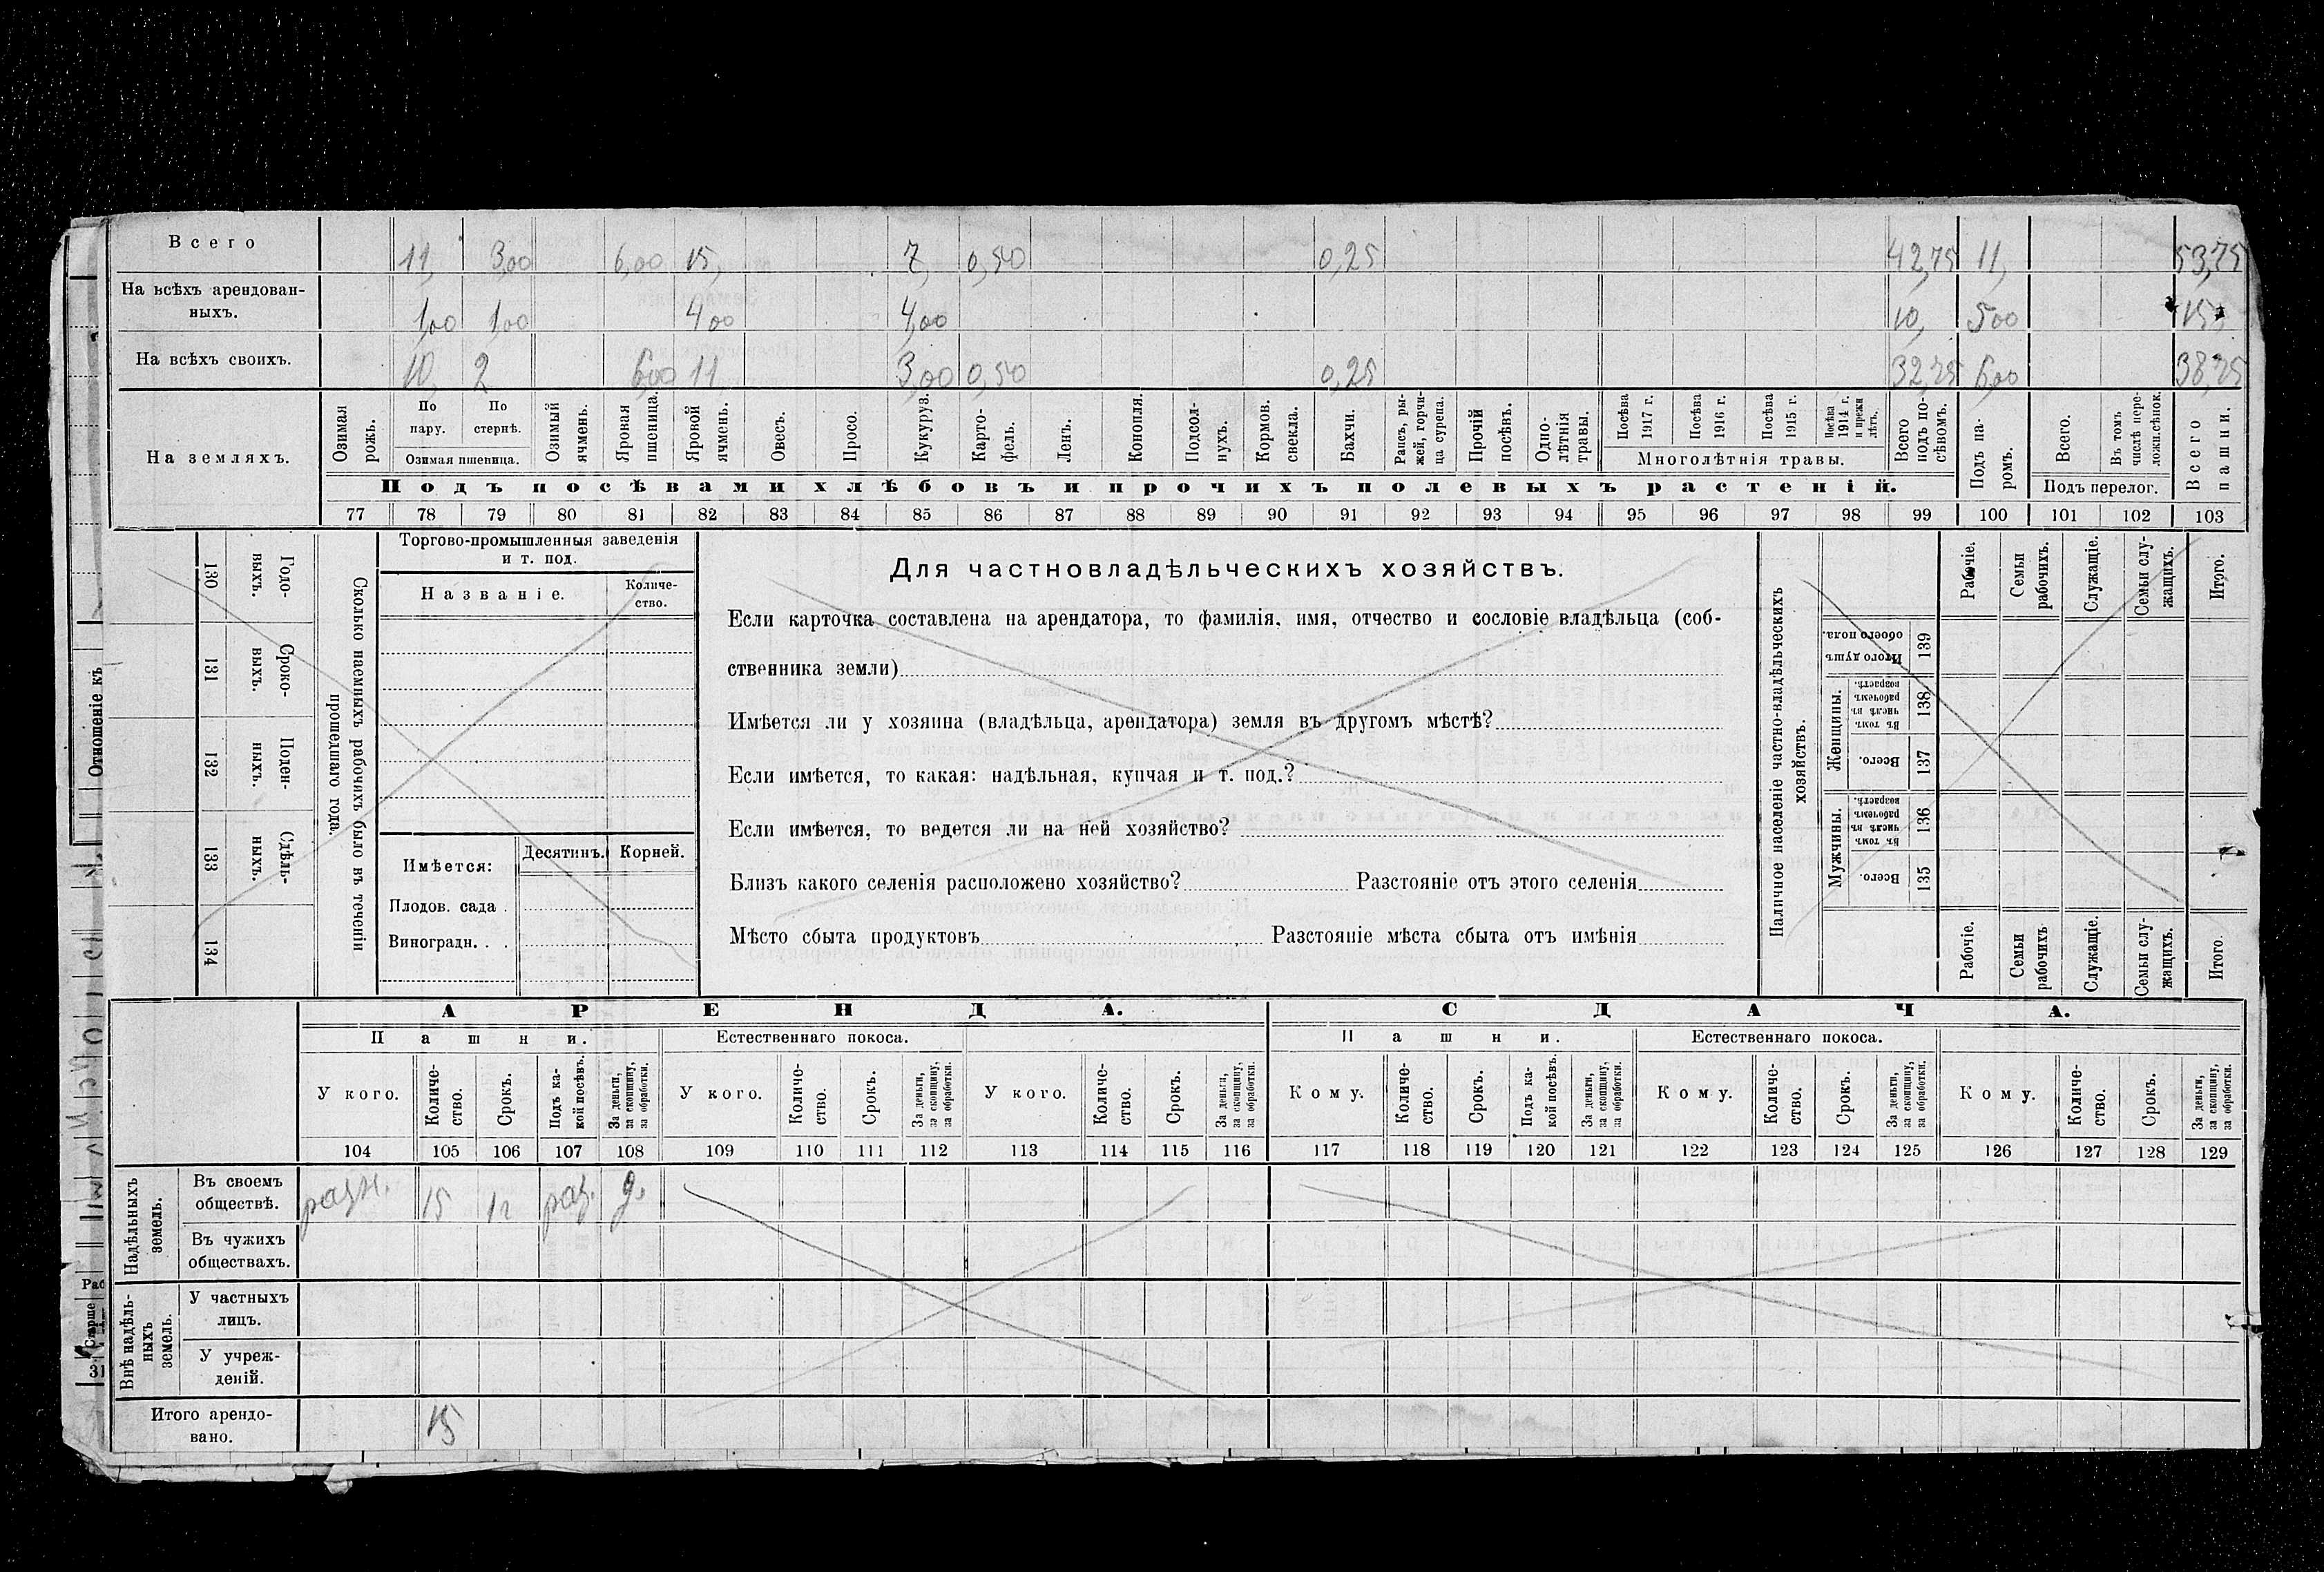 Всего 11, 3,00 6,00 15, 7, 0,50 0,25 42,75 11, 53,25
На всѣхъ арендован-
ныхъ. 1,00 1,00 4 00 4,00 10, 5 00 15,
На всѣхъ своихъ. 10, 2 6,00 11 3,00 0,50 0,25 32,25 6,00 38,25
На земляхъ.
Озимая рожь.
По пару.
По стернѣ.
Озимая пшеница.
Озимый ячмень.
Яровая пшеница.
Яровой ячмень.
Овесъ.
Просо.
Кукуруз.
Карто-
фель.
Ленъ.
Конопля.
Подсол-
нухъ.
Кормов. свекла.
Бахчи.
Рапсъ, ры-
жей, горчи-
ца сурепа.
Прочій посѣвъ.
Одно-
лѣтнія травы.
Посѣва 1917 г.
Посѣва 1916 г.
Посѣва 1915 г.
Посѣва 1914 г. и прежн лѣтъ.
Многолѣтнія травы.
Всего подъ по-
сѣвомъ.
Подъ па-
ромъ.
Всего.
Въ томъ числѣ пере-
ложн.сѣнок.
Подъ перелог.
Всего пашни.
Подъ посѣвами хлѣбовъ и прочихъ полевыхъ растеній.
77 78 79 80 81 82 83 84 85 86 87 88 89 90 91 92 93 94 95 96 97 98 99 100 101 102 103
Отношеніе къ
130
Годо-
выхъ.
131
Сроко-
выхъ.
132
Поден-
ныхъ.
133
Сдѣль-
ныхъ.
134
Сколько наемныхъ рабочихъ было въ теченіи
прошедшаго года.
Торгово-промышленныя заведенія
и т. под.
Названіе.
Количе-
ство.
Имѣется:
Десятинъ. Корней.
Плодов. сада .
Виноградн. . .
Для частновладѣльческихъ хозяйствъ.
Если карточка составлена на арендатора, то фамилія, имя, отчество и сословіе владѣльца (соб-
ственника земли)
Имѣется ли у хозяина (владѣльца, арендатора) земля въ другомъ мѣстѣ?
Если имѣется, то какая: надѣльная, купчая и т. под.?
Если имѣется, то ведется ли на ней хозяйство?
Близъ какого селенія расположено хозяйство? Разстояніе отъ этого селенія
Мѣсто сбыта продуктовъ Разстояніе мѣста сбыта отъ имѣнія
Наличное населеніе частно-владѣльческихъ
хозяйствъ.
Рабочіе.
Семьи рабочихъ.
Служащіе.
Семьи слу-
жащихъ.
Итого.
Итого душъ обоего пола. 139
Женщины.
Въ томъ числѣ въ рабочемъ возрастѣ. 138
Всего. 137
Мужчины.
Въ томъ числѣ въ рабочемъ возрастѣ. 136
Всего. 135
Рабочіе.
Семьи рабочихъ
Служащіе.
Семьи слу-
жащихъ.
Итого.
АРЕНДА. СДАЧА.
Пашни. Естественнаго покоса. Пашни. Естественнаго покоса.
У кого.
Количе-
ство.
Срокъ.
Подъ ка-
кой посѣвъ.
За деньги, за скопщину, за обработки.
У кого.
Количе-
ство.
Срокъ.
За деньги, за скопщину, за обработки.
У кого.
Количе-
ство.
Срокъ.
За деньги, за скопщину, за обработки.
Кому.
Количе-
ство.
Срокъ.
Подъ ка-
кой посѣвъ.
За деньги, за скопщину, за обработки.
Кому.
Количе-
ство.
Срокъ.
За деньги, за скопщину, за обработки.
Кому.
Количе-
ство.
Срокъ.
За деньги, за скопщину, за обработки.
104 105 106 107 108 109 110 111 112 113 114 115 116 117 118 119 120 121 122 123 124 125 126 127 128 129
Надѣльныхъ земель.
Въ своемъ
обществѣ. разн. 15 1г раз. д.
Въ чужихъ
обществахъ.
Внѣ надѣль-
ныхъ земель.
У частныхъ
лицъ.
У учреж-
деній.
Итого арендо-
вано. 15
Раб
Старше
31